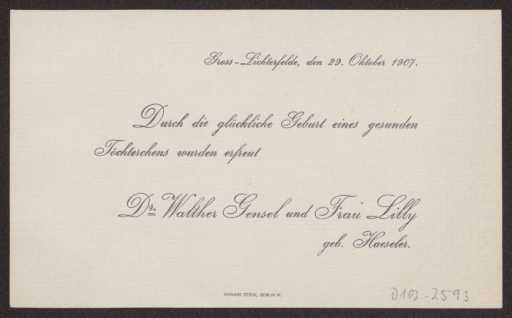 Gross-Lichterfelde, den 29. Oktober 1907.
Durch die glückliche Geburt eines gesunden
Töchterchens wurden erfreut
Dr. Walther Gensel und Frau Lilly
geb. Haeseler.
BERLIN W.
D103-2593